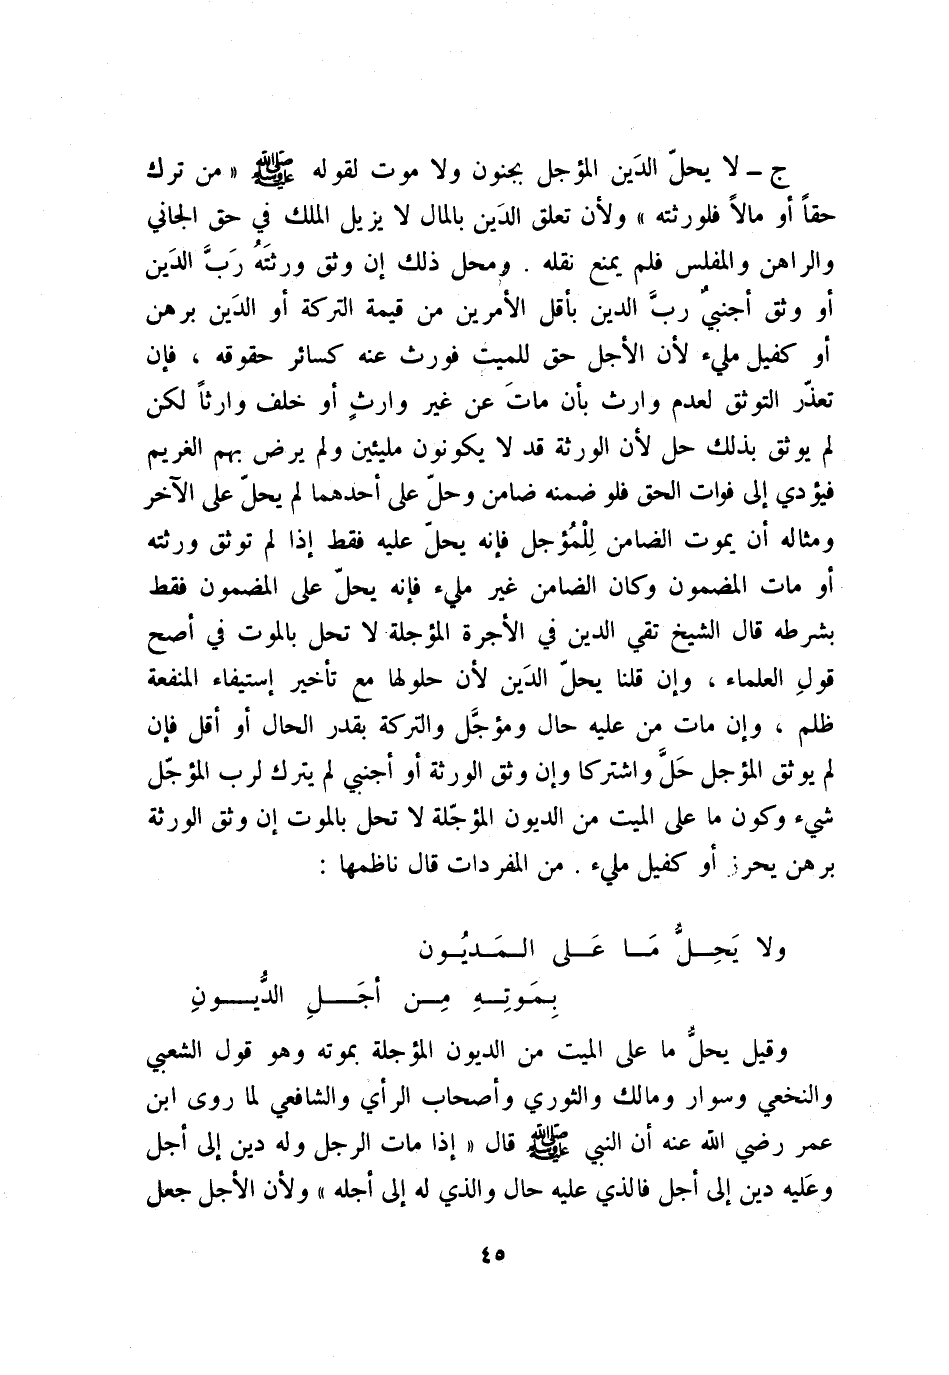 ج ـ لا يحلّ الدَين المؤجل بجنون ولا موت لقوله ﷺ « من ترك
حقاً أو مالاً فلورثته » ولأن تعلق الدَين بالمال لا يزيل الملك في حق الجاني
والراهن والمفلس فلم يمنع نقله . ومحل ذلك إن وثق ورثتَهُ رَبَّ الدَين
أو وثق أجنبيٌ ربَّ الدين بأقل الأمرين من قيمة التركة أو الدَين برهن
أو كفيل مليء لأن الأجل حق للميت فورث عنه كسائر حقوقه ، فإن
تعذّر التوثق لعدم وارث بأن ماتَ عن غير وارثٍ أو خلف وارثاً لكن
لم يوثق بذلك حل لأن الورثة قد لا يكونون مليئين ولم يرض بهم الغريم
فيؤدي إلى فوات الحق فلو ضمنه ضامن وحلّ على أحدهما لم يحلّ على الآخر
ومثاله أن يموت الضامن لِلْمُؤجل فإنه يحلّ عليه فقط إذا لم توثق ورثته
أو مات المضمون وكان الضامن غير مليء فإنه يحلّ على المضمون فقط
بشرطه قال الشيخ تقي الدين في الأجرة المؤجلة لا تحل بالموت في أصح
قولِ العلماء ، وإن قلنا يحلّ الدَين لأن حلولها مع تأخير إستيفاء المنفعة
ظلم ، وإن مات من عليه حال ومؤجَّل والتركة بقدر الحال أو أقل فإن
لم يوثق المؤجل حَلَّ واشتركا وإن وثق الورثة أو أجنبي لم يترك لرب المؤجّل
شيء وكون ما على الميت من الديون المؤجّلة لا تحل بالموت إن وثق الورثة
برهن يحرز أو كفيل مليء . من المفردات قال ناظمها :
ولا يَحِــلُّ مَــا عَــلى الــمَــديُــون
بِــمَــوتِــهِ مِــن أجَــلِ الدُّيــونِ
وقيل يحلُّ ما على الميت من الديون المؤجلة بموته وهو قول الشعبي
والنخعي وسوار ومالك والثوري وأصحاب الرأي والشافعي لما روى ابن
عمر رضي الله عنه أن النبي ﷺ قال « إذا مات الرجل وله دين إلى أجل
وعَليه دين إلى أجل فالذي عليه حال والذي له إلى أجله » ولأن الأجل جعل
٤٥